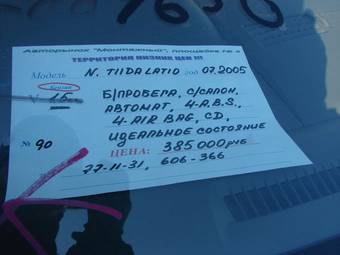 Авторынок "Монтажный", площадка № 2
ТЕРРИТОРИЯ НИЗКИХ ЦЕН !!!
Модель N. TIIDA LATIO год 07.2005
Бензин
V 1.5
Б/ПРОБЕГА, С/САЛОН,
АВТОМАТ, 4-A.B.S.,
4-AIR BAG, CD,
ИДЕАЛЬНОЕ СОСТОЯНИЕ
№ 90
ЦЕНА: 385 000 РУБ
27-11-31, 606-366